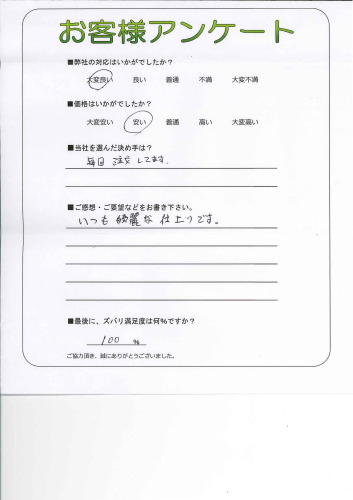 お客様アンケート
■弊社の対応はいかがでしたか?
大変良い 良い 普通 不満 大変不満
■価格はいかがでしたか?
大変安い 安い 普通 高い 大変高い
■当社を選んだ決め手は?
毎回 注文してます。
■ご感想・ご要望などをお書き下さい。
いつも 綺麗な 仕上りです。
■最後に、ズバリ満足度は何%ですか?
100 %
ご協力頂き、誠にありがとうございました。